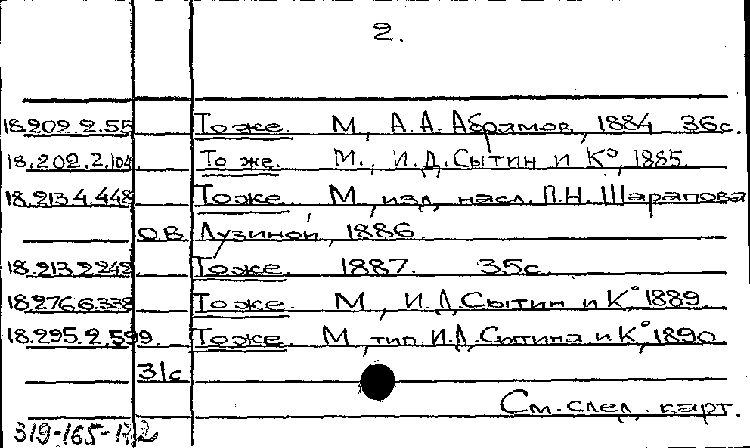 2.
18.202.2.55 То же. М., А.А. Абрамов, 1884 36с.
18.202.2.104 То же. М., И.Д. Сытин и К°, 1885.
18.213.4.448 То же. М., изд. насл. П.Н. Шарапова
О.В. Лузиной, 1886
18.213.2.242 То же. 1887. 35с.
18.276.6.338 То же. М., И.Д. Сытин и К°, 1889.
18.295.2.599. То же. М., тип. И.Д. Сытина и К°, 1890
31с
См. след. карт.
319-165-172